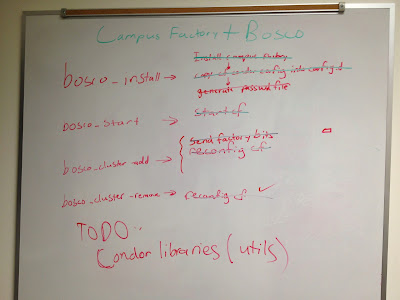 Campus Factory + Bosco
Install campus factory
bosco_install → copy cf condor config into config.d
generate password file
bosco_start → start cf
send factory bits
bosco_cluster-add → { reconfig cf
bosco_cluster-remove → reconfig cf ✓
TODO:
Condor libraries (utils)